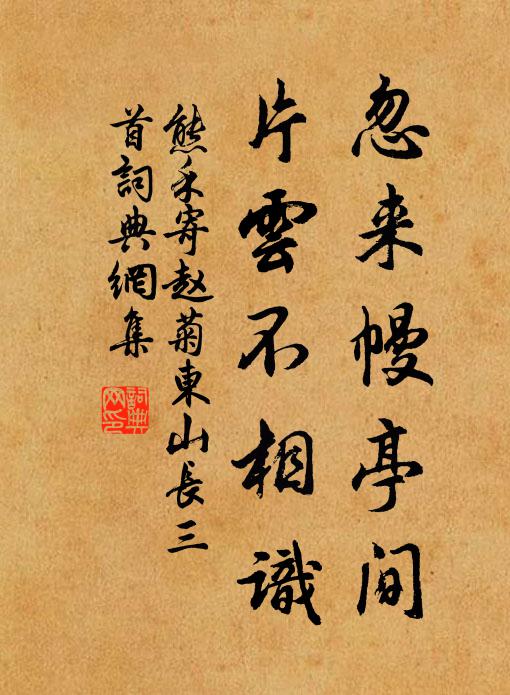 忽来幔亭间
片雲不相識
熊禾寄赵菊東山長三
首詞典網集
詞典
网印